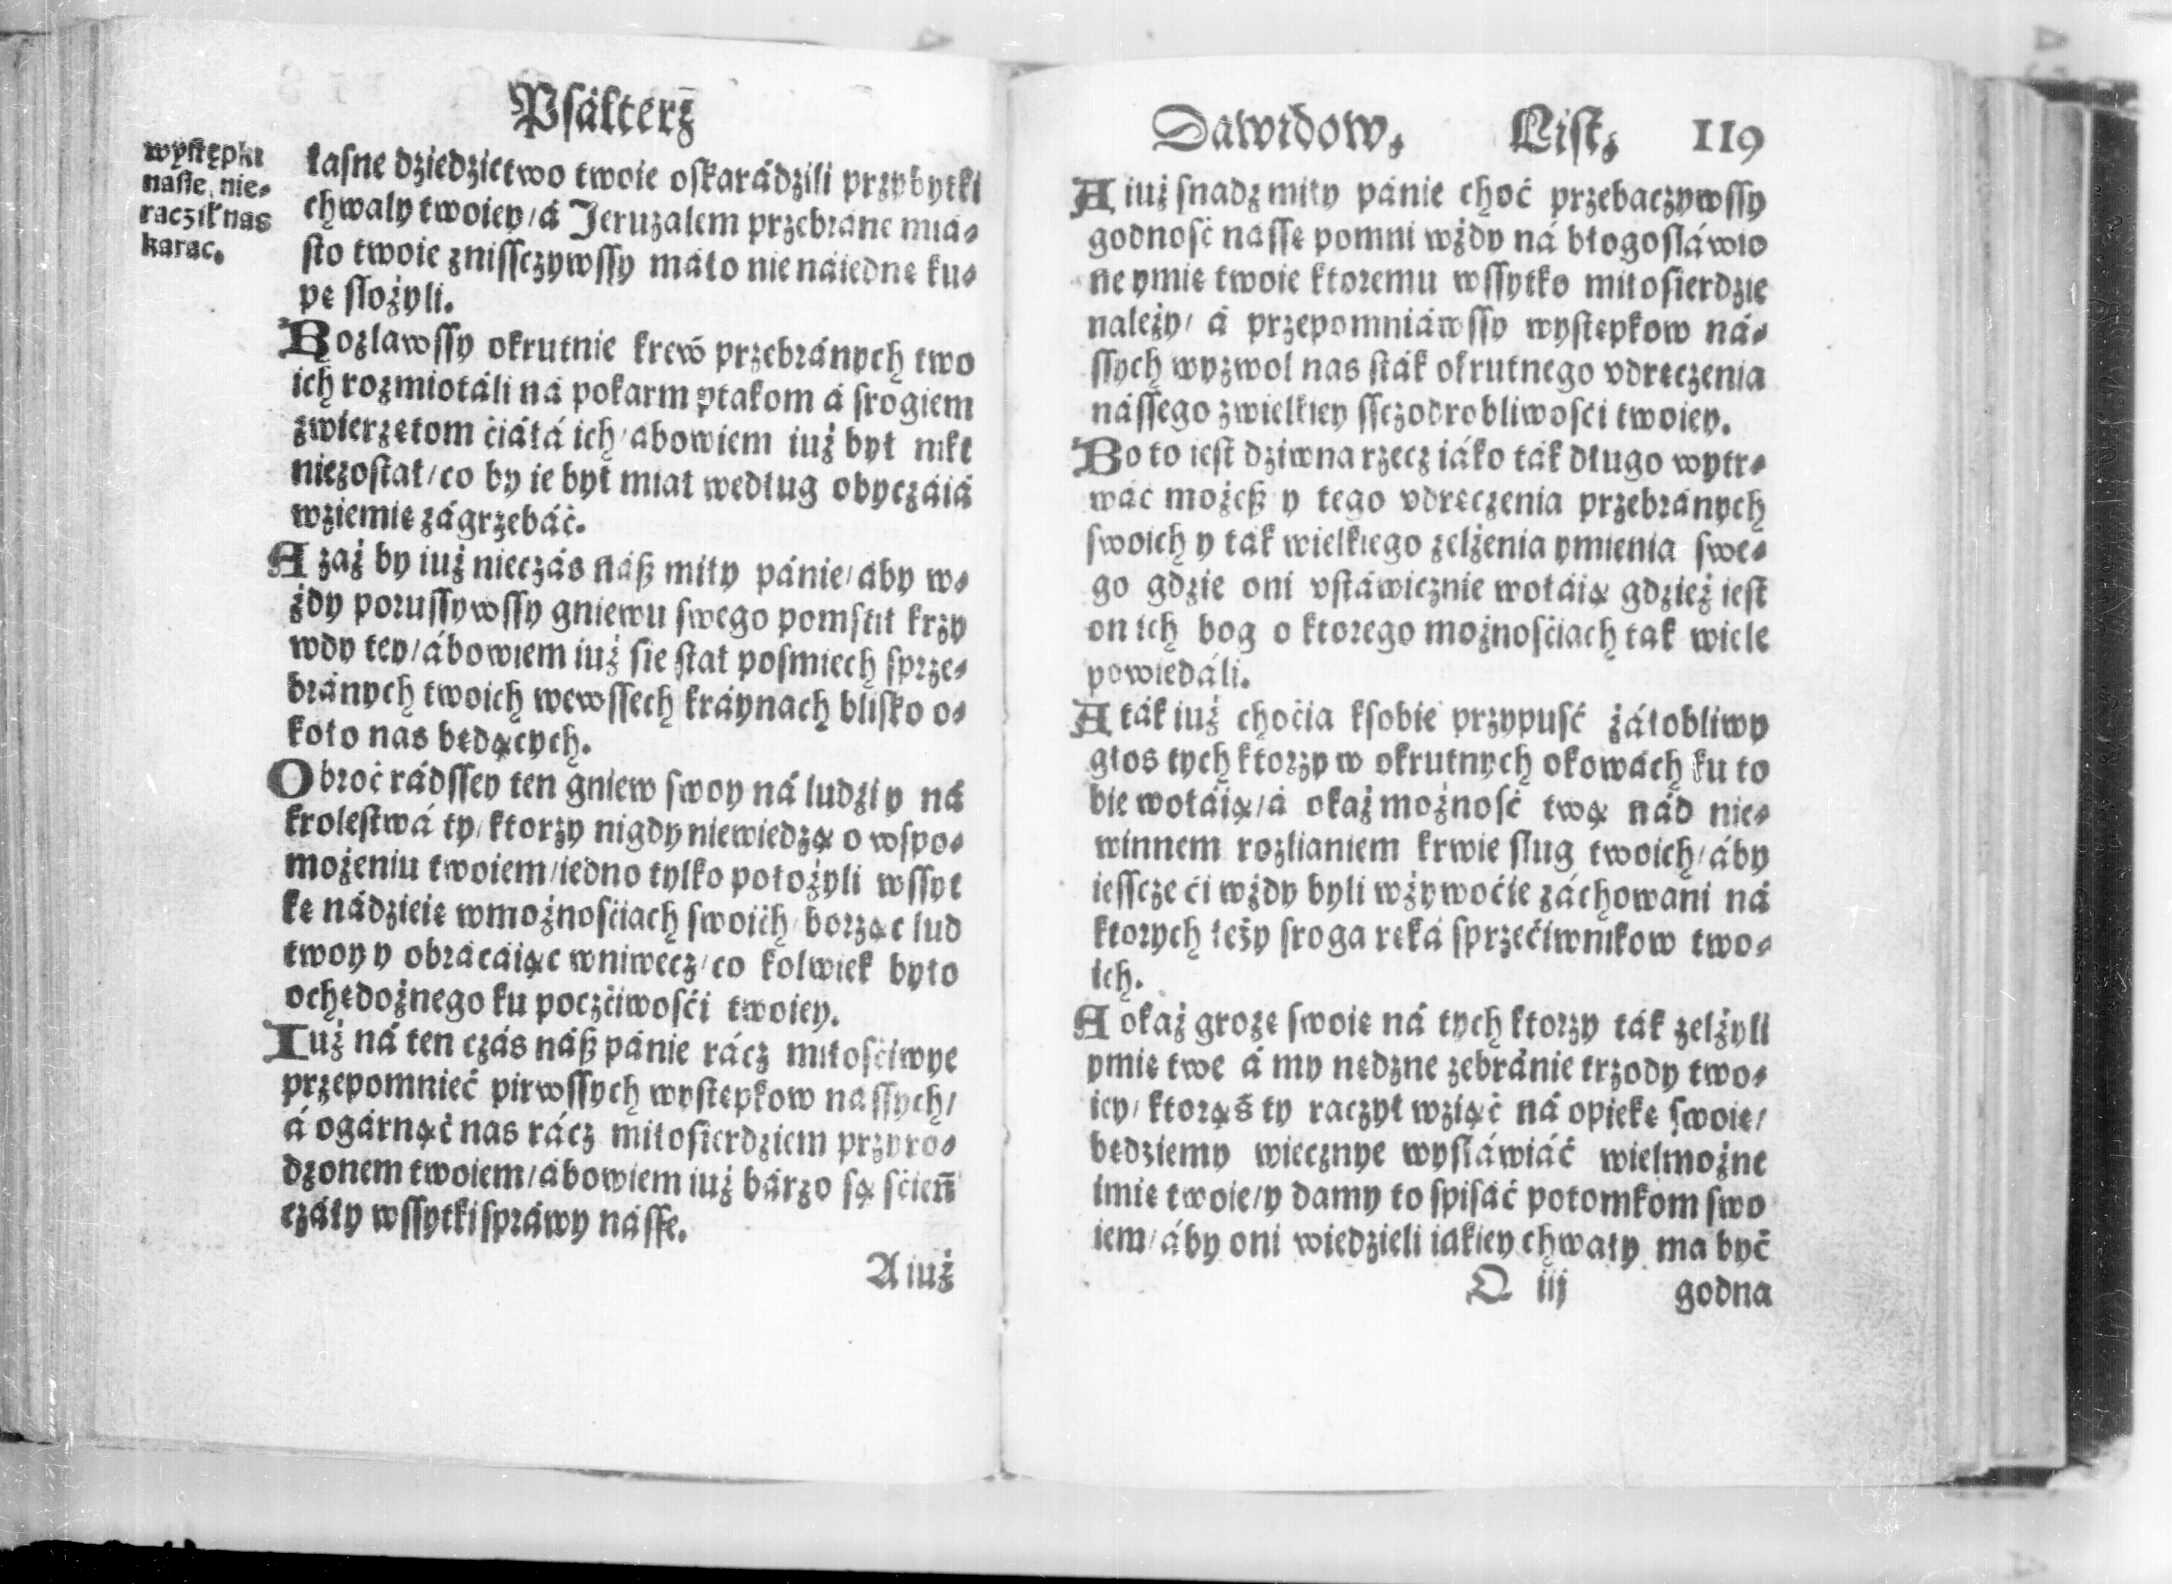 Psálterz
występki
nasze, nie-
racził nas
karac.
łasne dziedzictwo twoie oskarádzili przybytki
chwaly twoiey / á Jeruzalem przebráne miá-
sto twoie znissczywssy máło nie náiednę ku-
pę słożyli.
Rozlawssy okrutnie krew przebránych two
ich rozmiotáli ná pokarm ptakom á srogiem
źwierzętom ćiáłá ich / abowiem iuż był nikt
niezostał / co by ie był miał według obyczáiá
wziemię zágrzebáć.
Azaż by iuż nieczás náß miły pánie / aby w-
żdy porussywssy gniewu swego pomścił krzy
wdy tey / ábowiem iuż sie stał posmiech sprze-
bránych twoich wewssech kráynach blisko o-
koło nas będących.
Obroć rádssey ten gniew swoy ná ludzi y ná
krolestwá ty / ktorzy nigdy niewiedzą o wspo-
możeniu twoiem / iedno tylko położyli wssyt
kę nádzieię wmożnosćiach swoich / borząc lud
twoy y obracáiąc wniwecz / co kolwiek było
ochędożnego ku poczćiwosći twoiey.
Iuż ná ten czás náß pánie rácz miłosćiwye
przepomnieć pirwssych występkow nassych /
á ogárnąć nas rácz miłosierdziem przyro-
dzonem twoiem / ábowiem iuż bárzo są sćień
czáły wssytki spráwy násse.
A iuż
Dawidow. List. 119
A iuż snadz miły pánie choć przebaczywssy
godność nassę pomni wżdy ná błogosláwio
ne ymię twoie ktoremu wssytko miłosierdzie
należy / á przepomniáwssy występkow ná-
ssych wyzwol nas sták okrutnego vdręczenia
nássego zwielkiey ssczodrobliwosći twoiey.
Bo to iest dziwna rzecz iáko ták długo wytr-
wáć możeß y tego vdręczenia przebránych
swoich y ták wielkiego zelżenia ymienia swe-
go gdzie oni vstáwicznie wołáią gdzież iest
on ich bog o ktorego możnosćiach tak wiele
powiedáli.
A ták iuż choćia ksobie przypusć żáłobliwy
głos tych ktorzy w okrutnych okowách ku to
bie wołáią / á okaż możność twą nád nie-
winnem rozlianiem krwie slug twoich / áby
iessczeći wżdy byli wżywoćie záchowani ná
ktorych leży sroga ręká sprzećiwnikow two-
ich.
A okaż grozę swoię ná tych ktorzy ták zelżyli
ymię twe á my nędzne zebránie trzody two-
iey / ktorąś ty raczył wziąć ná opiekę swoię /
będziemy wiecznye wysláwiáć wielmożne
imię twoie / y damy to spisáć potomkom swo
iem / áby oni wiedzieli iakiey chwały ma być
O iij godna